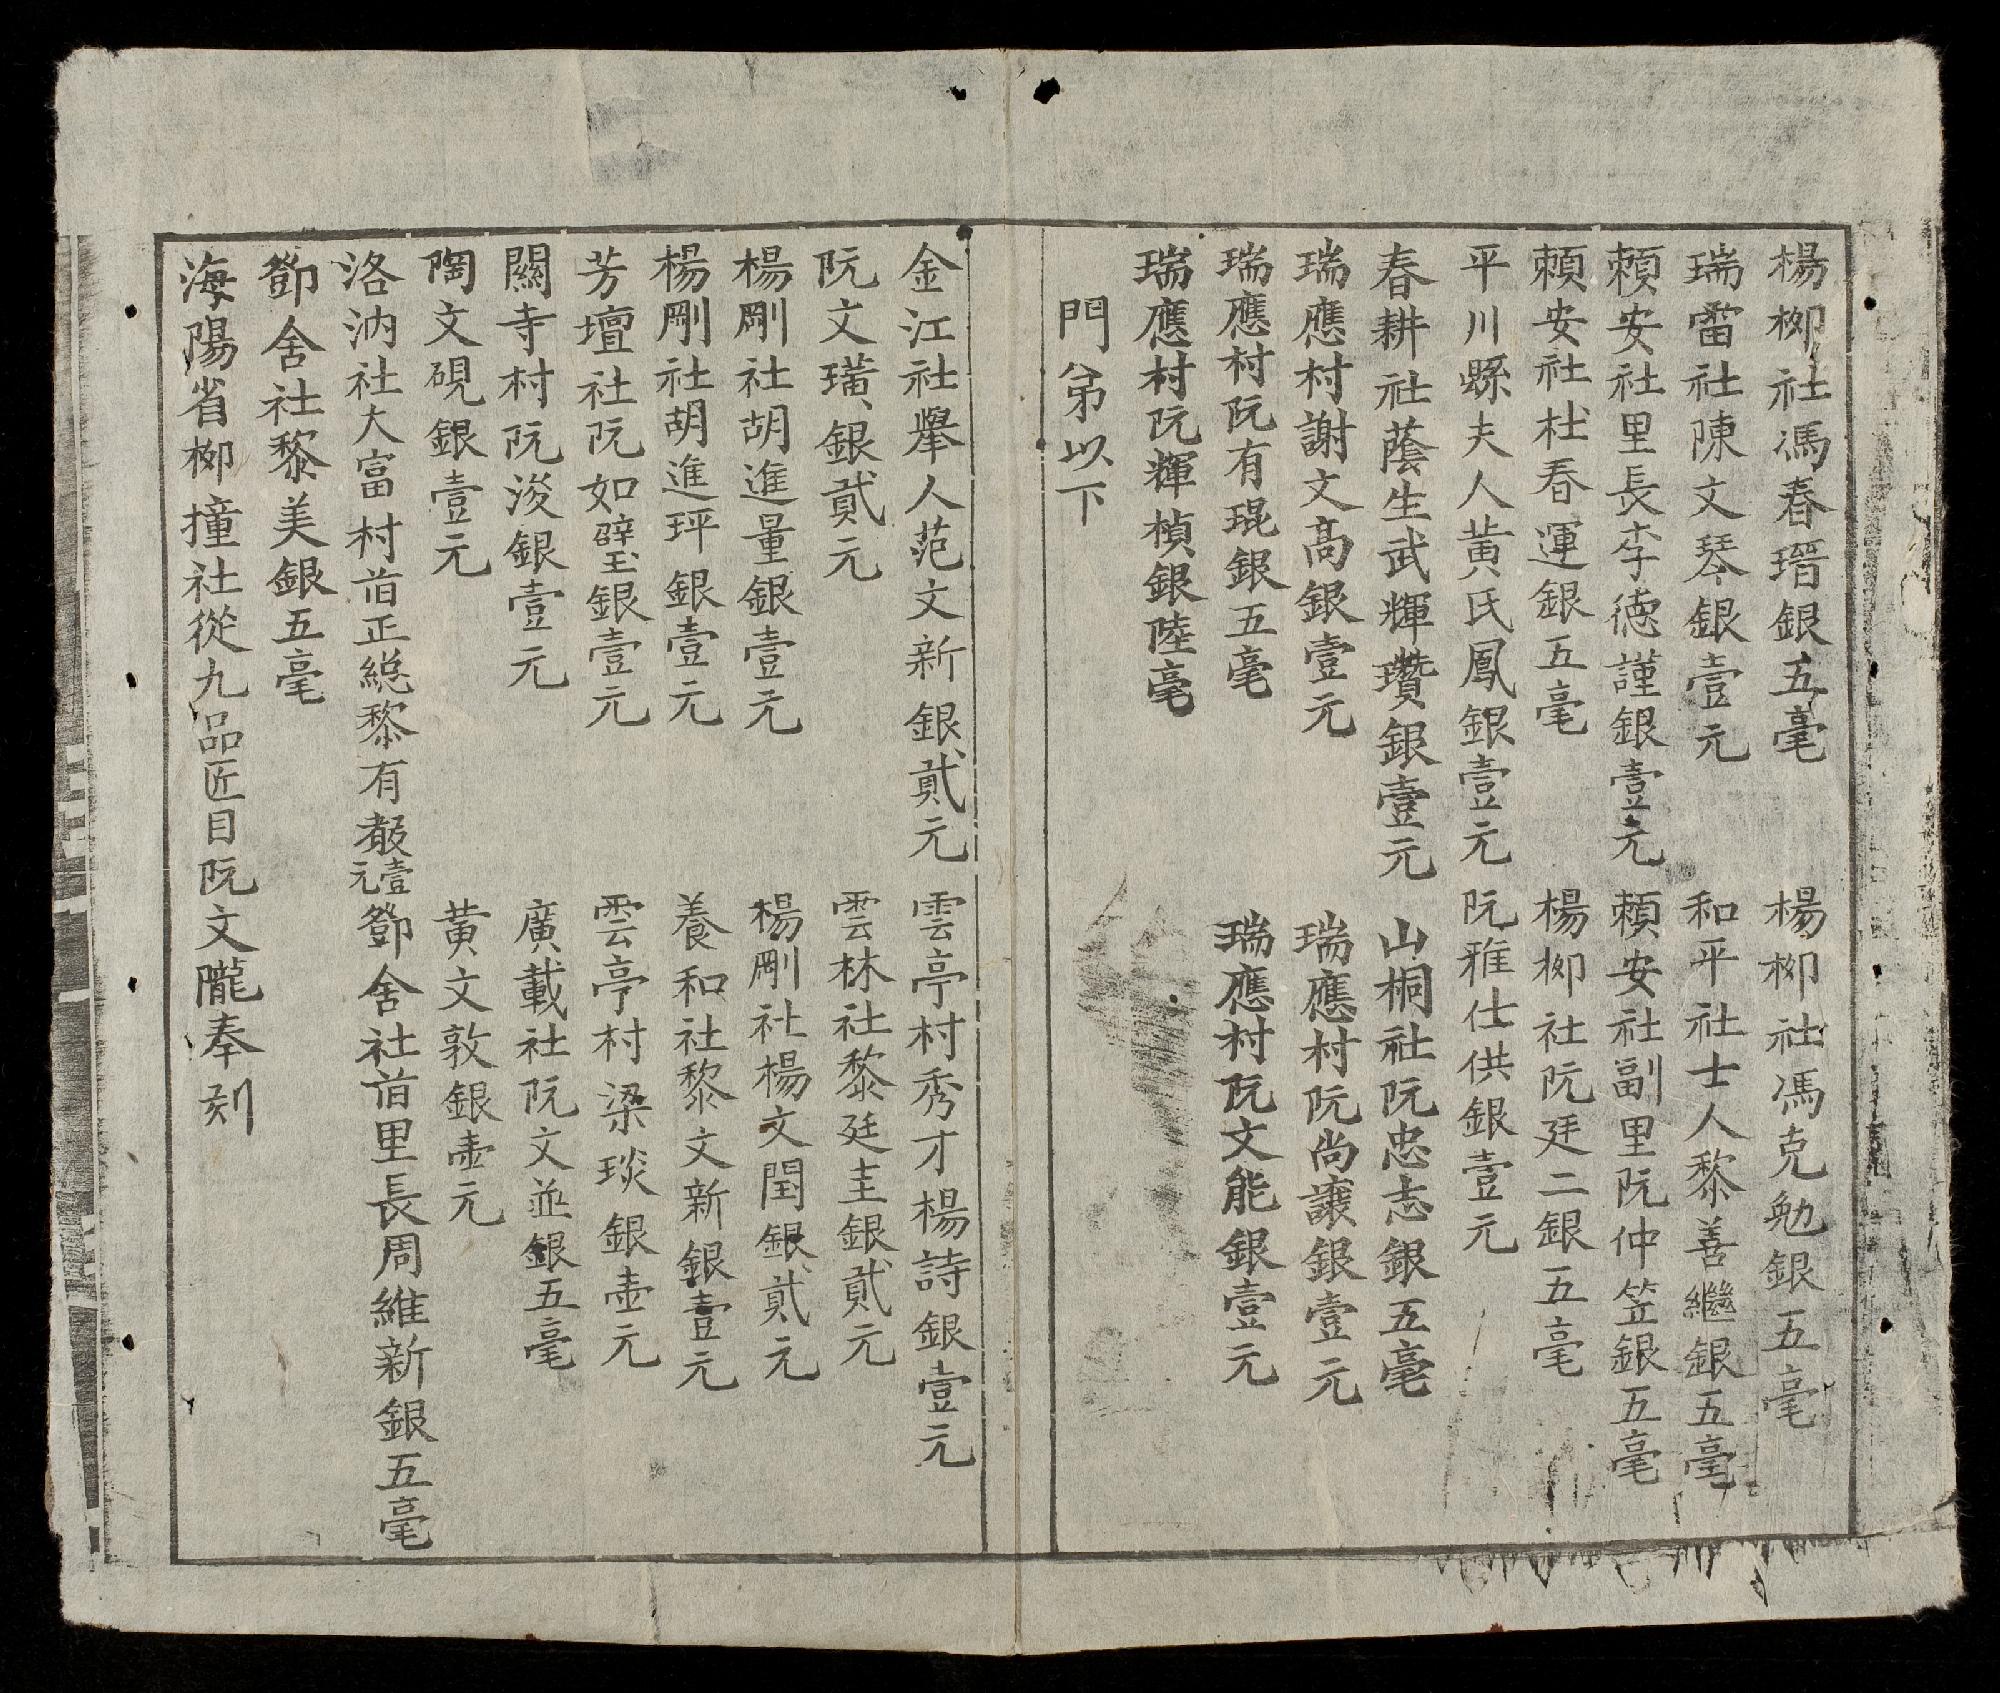 楊柳社馮春瑨銀五毫　楊柳社馮克勉銀五毫
瑞雷社陳文琴銀壹元　和平社士人黎善繼銀五毫
賴安社里長李德謹銀壹元　賴安社副里阮仲笠銀五毫
賴安社杜春運銀五毫　楊柳社阮廷二銀五毫
平川縣夫人黃氏鳳銀壹元　阮雅仕供銀壹元
春耕社蔭生武輝瓚銀壹元　山桐社阮忠志銀五毫
瑞應村謝文高銀壹元　瑞應村阮尚讓銀壹元
瑞應村阮有琨銀五毫　瑞應村阮文能銀壹元
瑞應村阮輝楨銀陸毫
門弟以下
金江社舉人范文新銀貳元　雲亭村秀才楊詩銀壹元
阮文璜銀貳元　雲林社黎廷圭銀貳元
楊剛社胡進量銀壹元　楊剛社楊文閏銀貳元
楊剛社胡進玶銀壹元　養和社黎文新銀壹元
芳壇社阮如璧銀壹元　雲亭村梁琰銀壶元
關寺村阮浚銀壹元　廣載社阮文並銀五毫
陶文硯銀壹元　黃文敦銀壶元
洛汭社大富村前正総黎有㪇壹元　鄧舍社前里長周維新銀五毫
鄧舍社黎美銀五毫
海陽省柳撞社從九品匠目阮文隴奉刻